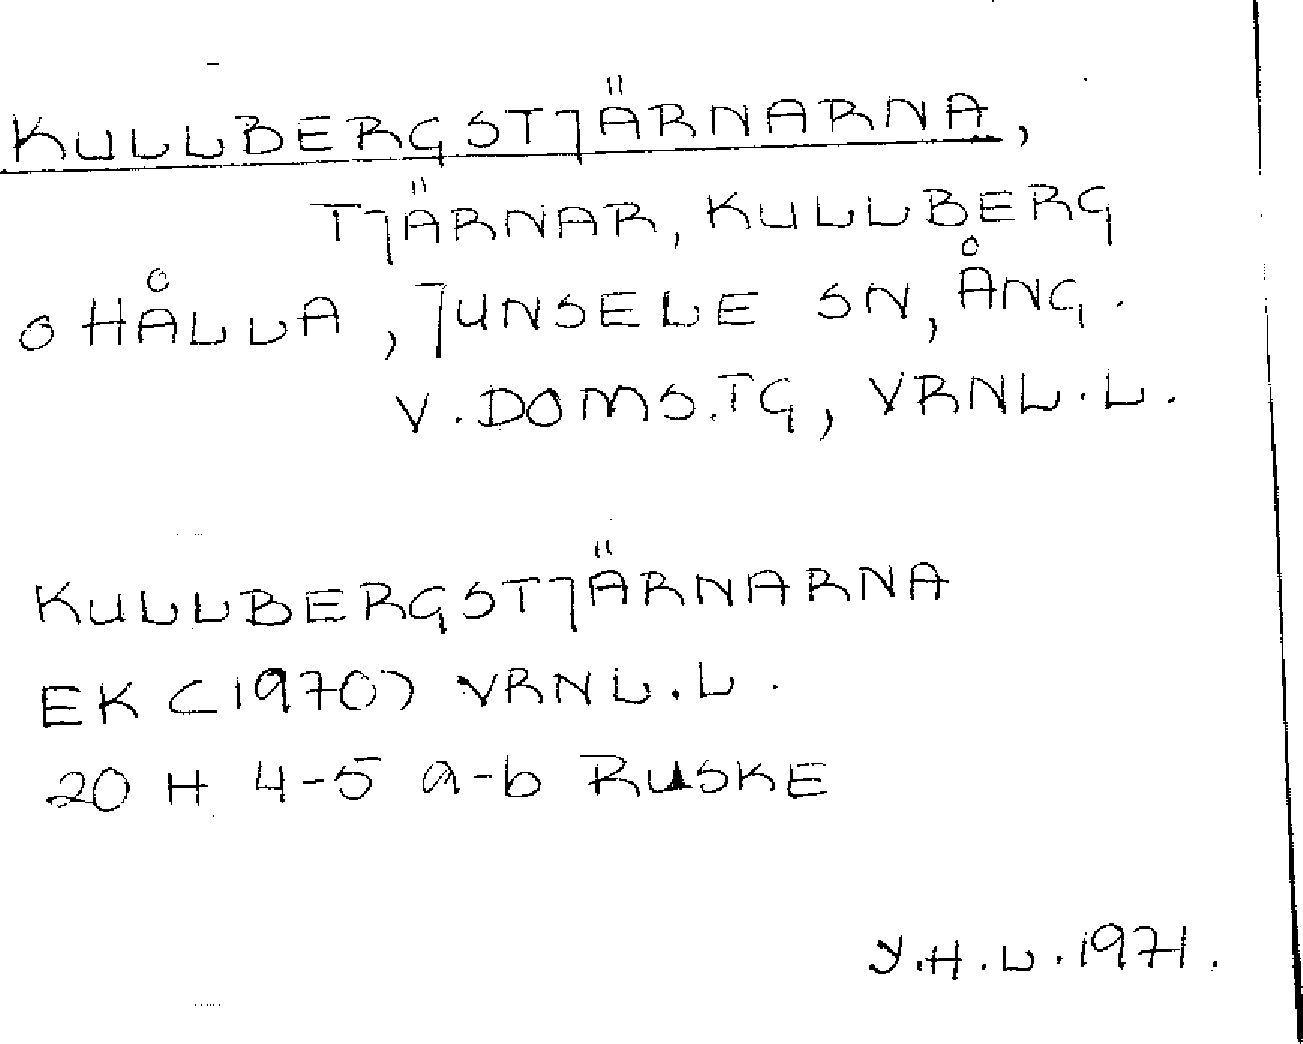 KULLBERGSTJÄRNARNA,
TJÄRNAR, KULLBERG
O HÅLLA, JUNSELE SN, ÅNG.
V. DOMS.TG, VRNL.L.
KULLBERGSTJÄRNARNA
EK (1970) VRNL.L.
20 H 4-5 a-b RUSKE
Y.H.L. 1971.